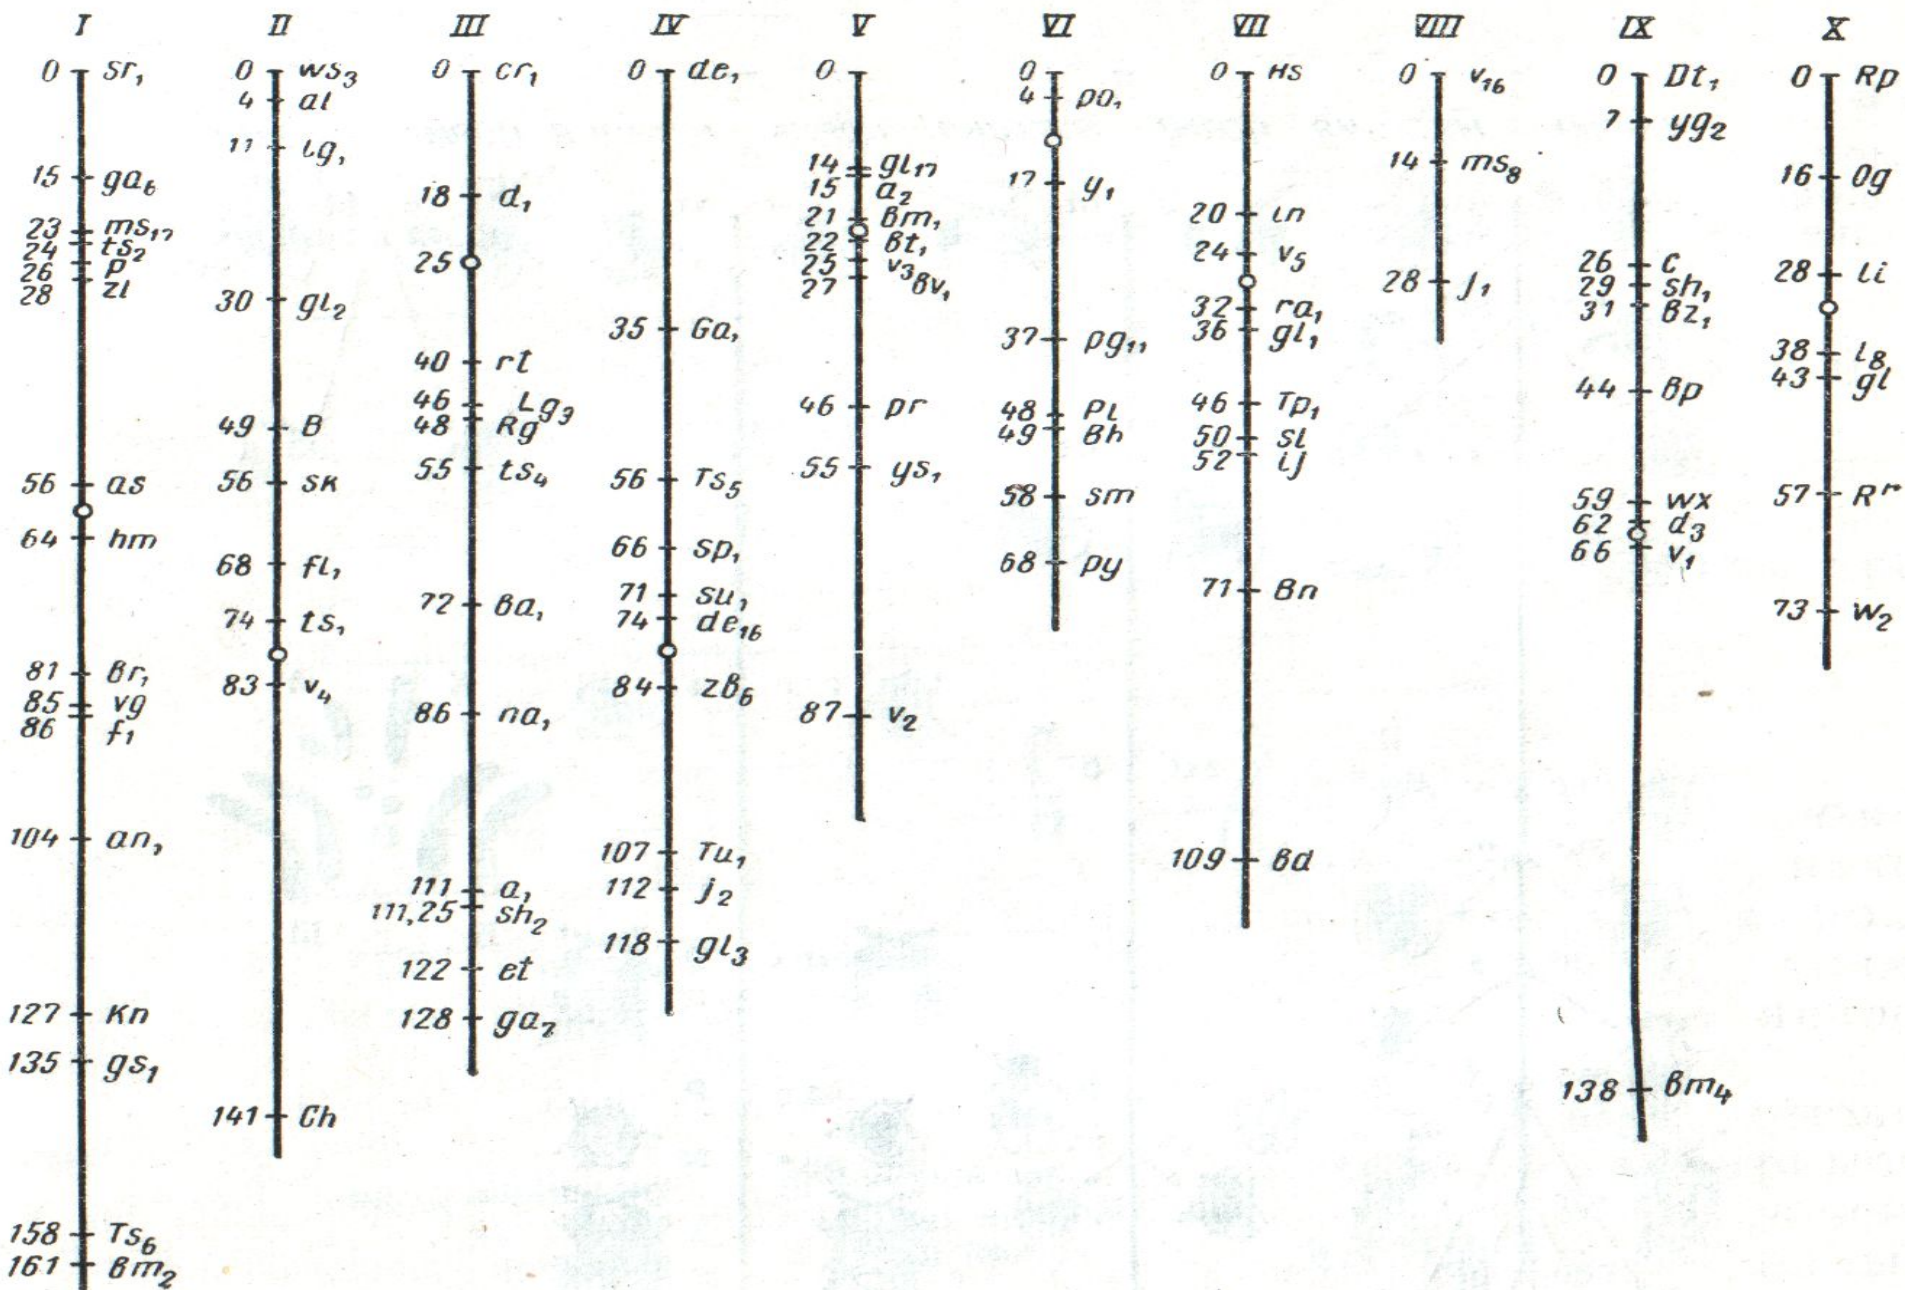 I II III IV V VI VII VIII IX X
0 sr₁
15 ga₆
23 ms₁₇
24 ts₂
26 P
28 zl
56 as
64 hm
81 br₁
85 vg
86 f₁
104 an₁
127 Kn
135 gs₁
158 Ts₆
161 bm₂
0 ws₃
4 al
11 lg₁
30 gl₂
49 B
56 sk
68 fl₁
74 ts₁
83 v₄
141 Ch
0 cr₁
18 d₁
25
40 rt
46 Lg₃
48 Rg
55 ts₄
72 ba₁
86 na₁
111 a₁
111,25 sh₂
122 et
128 ga₇
0 de₁
35 Ga₁
56 Ts₅
66 sp₁
71 su₁
74 de₁₆
84 zb₆
107 Tu₁
112 j₂
118 gl₃
0
14 gl₁₇
15 a₂
21 bm₁
22 bt₁
25 v₃
27 bv₁
46 pr
55 ys₁
87 v₂
0
4 po₁
17 y₁
37 pg₁₁
48 Pl
49 Bh
58 sm
68 py
0 Hs
20 in
24 v₅
32 ra₁
36 gl₁
46 Tp₁
50 sl
52 ij
71 Bn
109 bd
0 v₁₆
14 ms₈
28 j₁
0 Dt₁
7 yg₂
26 C
29 sh₁
31 bz₁
44 bp
59 wx
62 d₃
66 v₁
138 bm₄
0 Rp
16 Og
28 li
38 l₈
43 gl
57 Rʳ
73 w₂